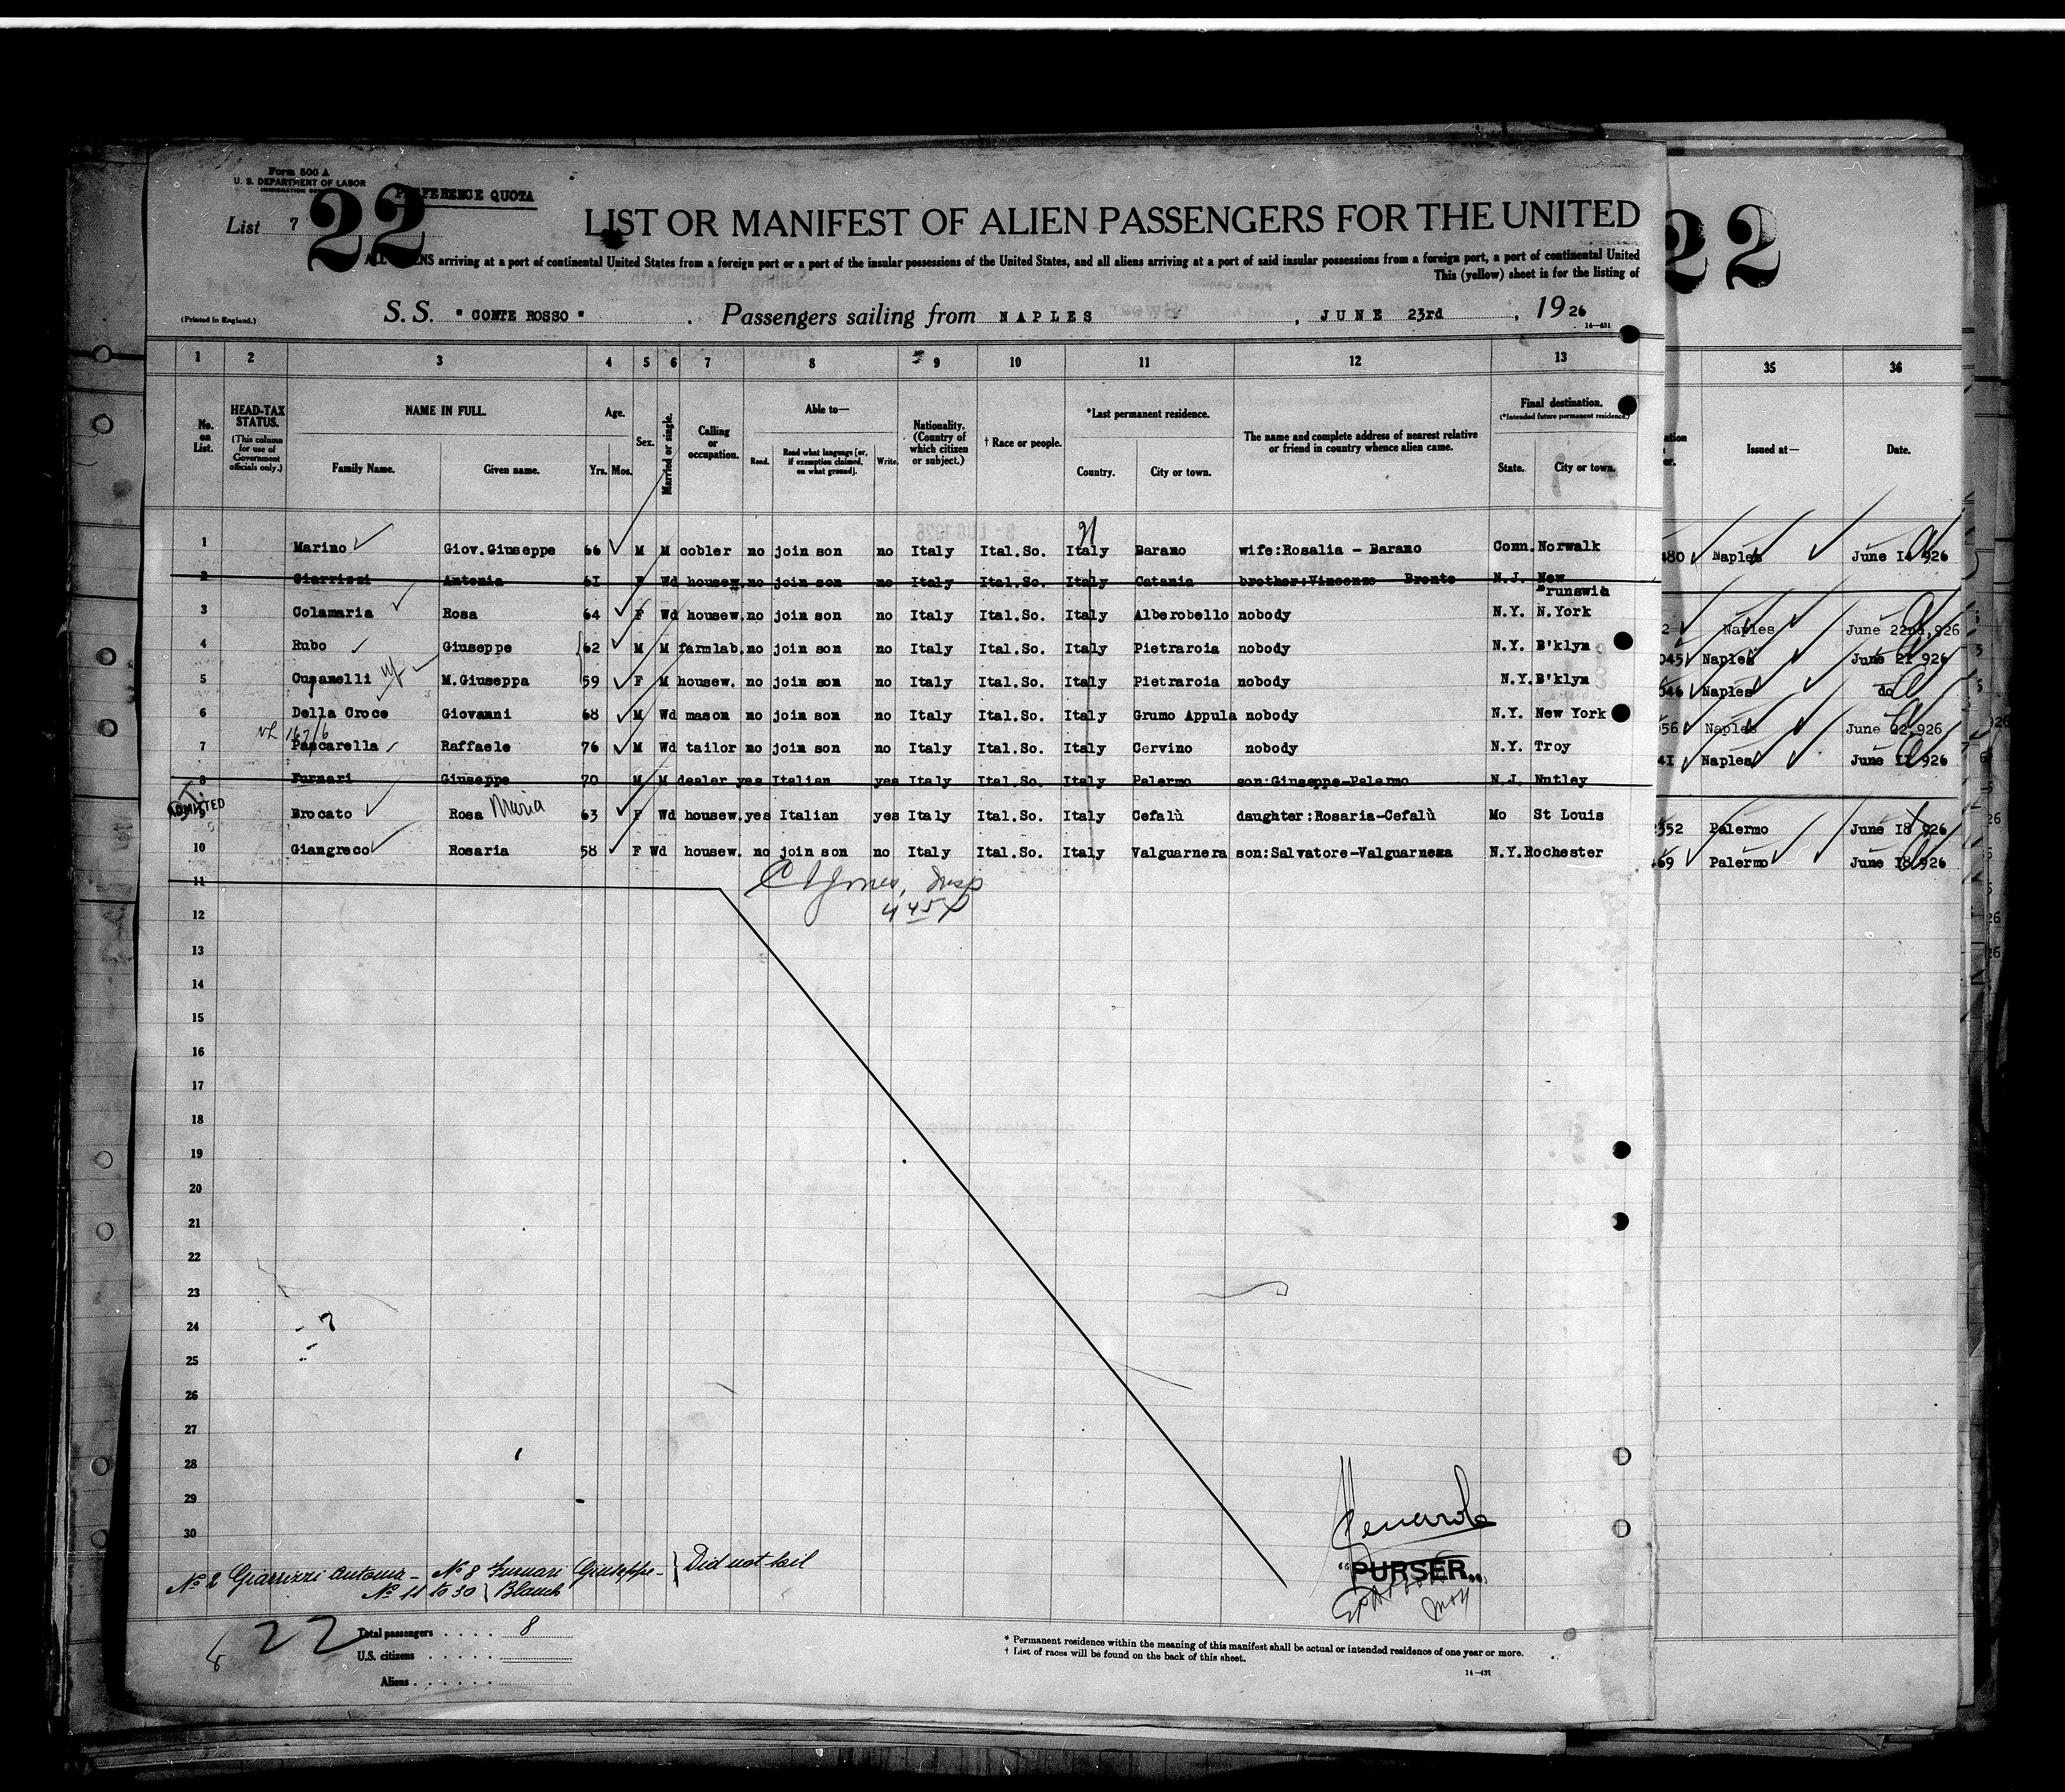 Form 500 A
U. S. DEPARTMENT OF LABOR
PREFERENCE QUOTA
List 7
22
22
LIST OR MANIFEST OF ALIEN PASSENGERS FOR THE UNITED
ALL ALIENS arriving at a port of continental United States from a foreign port or a port of the insular possessions of the United States, and all aliens arriving at a port of said insular possessions from a foreign port, a port of continental United
This (yellow) sheet is for the listing of
(Printed in England.)
S. S. "CONTE ROSSO" . Passengers sailing from NAPLES , JUNE 23rd , 1926
14—431
1 2 3 4 5 6 7 8 9 10 11 12 13 35 36
No. on List.
HEAD-TAX STATUS.
(This column for use of Government officials only.)
NAME IN FULL.
Family Name. Given name.
Age.
Yrs. Mos.
Sex.
Married or single.
Calling or occupation.
Able to—
Read. Read what language [or, if exemption claimed, on what ground]. Write.
Nationality. (Country of which citizen or subject.)
† Race or people.
*Last permanent residence.
Country. City or town.
The name and complete address of nearest relative or friend in country whence alien came.
Final destination.
(*Intended future permanent residence.)
State. City or town.
Issued at— Date.
1 Marino Giov.Giuseppe 66 M M cobler no join son no Italy Ital.So. Italy Barano wife:Rosalia - Barano Conn. Norwalk 480 Naples June 14 926
2 Giarrizzi Antonia 61 F Wd housew. no join son no Italy Ital.So. Italy Catania brother:Vincenzo - Bronte N.J. New Brunswic
3 Colamaria Rosa 64 F Wd housew. no join son no Italy Ital.So. Italy Alberobello nobody N.Y. N.York 2 Naples June 22nd,926
4 Rubo Giuseppe 62 M M farmlab. no join son no Italy Ital.So. Italy Pietraroia nobody N.Y. B'klyn 045 Naples June 21 926
5 Cusanelli M.Giuseppa 59 F M housew. no join son no Italy Ital.So. Italy Pietraroia nobody N.Y. B'klyn 046 Naples do
6 Della Croce Giovanni 68 M Wd mason no join son no Italy Ital.So. Italy Grumo Appula nobody N.Y. New York 056 Naples June 22,926
7 Pascarella Raffaele 76 M Wd tailor no join son no Italy Ital.So. Italy Cervino nobody N.Y. Troy 41 Naples June 11 926
8 Furnari Giuseppe 70 M M dealer yes Italian yes Italy Ital.So. Italy Palermo son:Giuseppe-Palermo N.J. Nutley
ADMITTED
9 Brocato Rosa Maria 63 F Wd housew. yes Italian yes Italy Ital.So. Italy Cefalù daughter:Rosaria-Cefalù Mo St Louis 352 Palermo June 18 926
10 Giangreco Rosaria 58 F Wd housew. no join son no Italy Ital.So. Italy Valguarnera son:Salvatore-Valguarnera N.Y. Rochester 69 Palermo June 18 926
11
12
13
14
15
16
17
18
19
20
21
22
23
24
25
26
27
28
29
30
"PURSER"
No 2 Giarrizzi Antonia - No 8 Furnari Giuseppe - } Did not sail
No 11 to 30 } Blank
22
Total passengers . . . . 8
U.S. citizens . . . . .
Aliens . . . . . .
* Permanent residence within the meaning of this manifest shall be actual or intended residence of one year or more.
† List of races will be found on the back of this sheet.
14—431